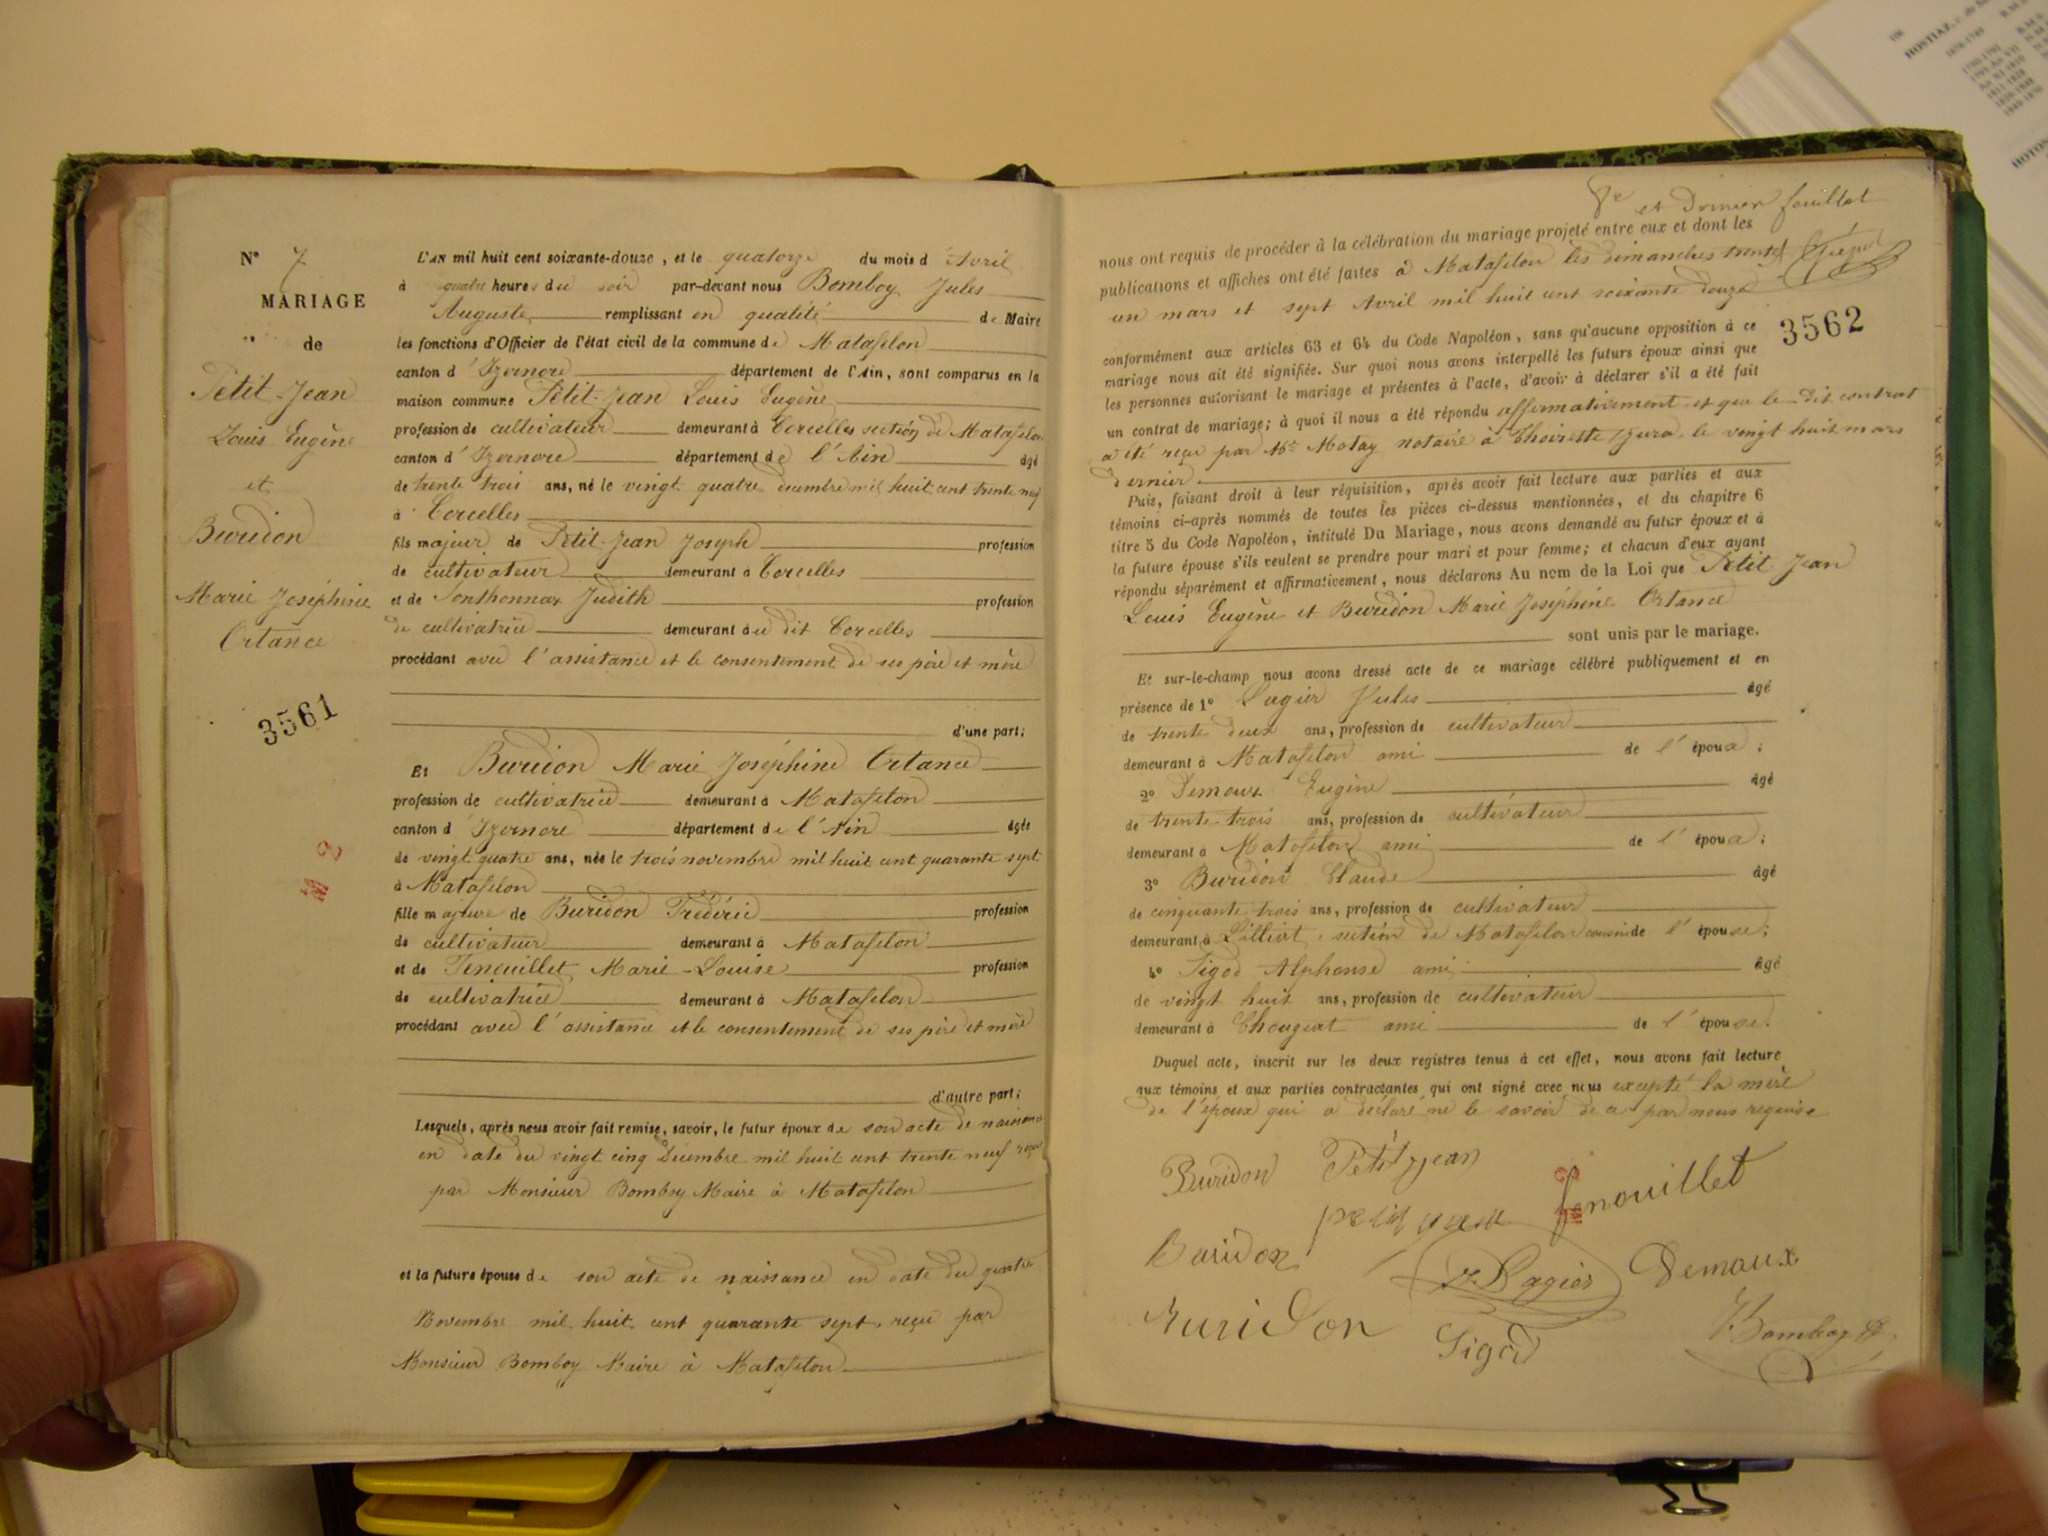 N° 7
MARIAGE
de
Petit-Jean
Louis Eugène
et
Buridon
Marie Joséphine
Ortance
3561
L'AN mil huit cent soixante-douze, et le quatorze du mois d'Avril
à quatre heures du soir par-devant nous Bomboy Jules
Auguste remplissant en qualité de Maire
les fonctions d'Officier de l'état civil de la commune de Matafelon
canton d'Izernore département de l'Ain, sont comparus en la
maison commune Petit-Jean Louis Eugène
profession de cultivateur demeurant à Corcelles section de Matafelon
canton d'Izernore département de l'Ain âgé
de trente trois ans, né le vingt quatre décembre mil huit cent trente neuf
à Corcelles
fils majeur de Petit-Jean Joseph profession
de cultivateur demeurant à Corcelles
et de Tonthonnax Judith profession
de cultivatrice demeurant au dit Corcelles
procédant avec l'assistance et le consentement de ses père et mère
d'une part;
Et Buridon Marie Joséphine Ortance
profession de cultivatrice demeurant à Matafelon
canton d'Izernore département de l'Ain âgée
de vingt quatre ans, née le trois novembre mil huit cent quarante sept
à Matafelon
fille majeure de Buridon Frédéric profession
de cultivateur demeurant à Matafelon
et de Fenouillet Marie-Louise profession
de cultivatrice demeurant à Matafelon
procédant avec l'assistance et le consentement de ses père et mère
d'autre part;
Lesquels, après nous avoir fait remise, savoir, le futur époux de son acte de naissance
en date du vingt cinq Décembre mil huit cent trente neuf reçu
par Monsieur Bomboy Maire à Matafelon
et la future épouse de son acte de naissance en date du quatre
Novembre mil huit cent quarante sept, reçu par
Monsieur Bomboy Maire à Matafelon
et Dernier feuillet
nous ont requis de procéder à la célébration du mariage projeté entre eux et dont les
publications et affiches ont été faites à Matafelon les dimanches trente
un mars et sept Avril mil huit cent soixante douze
3562
conformément aux articles 63 et 64 du Code Napoléon, sans qu'aucune opposition à ce
mariage nous ait été signifiée. Sur quoi nous avons interpellé les futurs époux ainsi que
les personnes autorisant le mariage et présentes à l'acte, d'avoir à déclarer s'il a été fait
un contrat de mariage; à quoi il nous a été répondu affirmativement et que le dit contrat
a été reçu par Me Motay notaire à Thoirette, Jura, le vingt huit mars
dernier.
Puis, faisant droit à leur réquisition, après avoir fait lecture aux parties et aux
témoins ci-après nommés de toutes les pièces ci-dessus mentionnées, et du chapitre 6
titre 5 du Code Napoléon, intitulé Du Mariage, nous avons demandé au futur époux et à
la future épouse s'ils veulent se prendre pour mari et pour femme; et chacun d'eux ayant
répondu séparément et affirmativement, nous déclarons Au nom de la Loi que Petit Jean
Louis Eugène et Buridon Marie Joséphine Ortance
sont unis par le mariage.
Et sur-le-champ nous avons dressé acte de ce mariage célébré publiquement et en
présence de 1° Lagier Jules âgé
de trente deux ans, profession de cultivateur
demeurant à Matafelon ami de l'époux;
2° Demoux Eugène âgé
de trente-trois ans, profession de cultivateur
demeurant à Matafelon ami de l'époux;
3° Buridon Claude âgé
de cinquante trois ans, profession de cultivateur
demeurant à section de Matafelon cousin de l'épouse;
4° Sigod Alphonse ami âgé
de vingt huit ans, profession de cultivateur
demeurant à Chougeat ami de l'épouse.
Duquel acte, inscrit sur les deux registres tenus à cet effet, nous avons fait lecture
aux témoins et aux parties contractantes qui ont signé avec nous excepté la mère
de l'époux qui a déclaré ne le savoir de ce par nous requise
Buridon Petitjean
fenouillet
petit jean
Buridon
Lagier Demoux
Buridon Sigod Bomboy